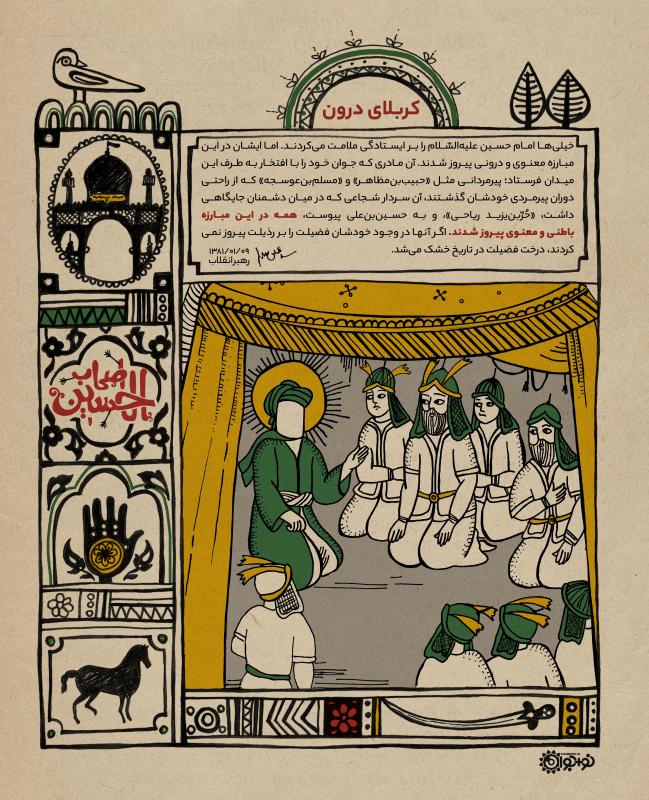 کربلای درون
خیلی‌ها امام حسین علیه‌السّلام را بر ایستادگی ملامت می‌کردند. اما ایشان در این
مبارزه معنوی و درونی پیروز شدند. آن مادری که جوان خود را با افتخار به طرف این
میدان فرستاد؛ پیرمردانی مثل «حبیب‌بن‌مظاهر» و «مسلم‌بن‌عوسجه» که از راحتی
دوران پیرمردی خودشان گذشتند، آن سردار شجاعی که در میان دشمنان جایگاهی
داشت، «حُرّبن‌یزید ریاحی»، و به حسین‌بن‌علی پیوست، همه در این مبارزه
باطنی و معنوی پیروز شدند. اگر آنها در وجود خودشان فضیلت را بر رذیلت پیروز نمی
کردند، درخت فضیلت در تاریخ خشک می‌شد.
۱۳۸۱/۰۱/۰۹
رهبر انقلاب
اصحاب
الحسین
نوجوان